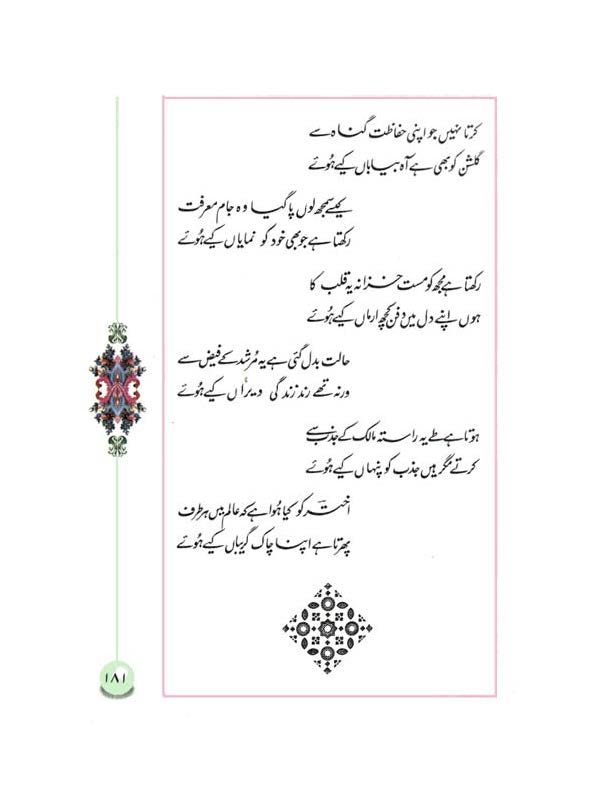 کرتا نہیں جو اپنی حفاظت گناہ سے
گلشن کو بھی ہے آہ بیاباں کیے ہُوئے
کیسے سمجھ لوں پا گیا وہ جام معرفت
رکھتا ہے جو بھی خود کو نمایاں کیے ہُوئے
رکھتا ہے مجھ کو مست خزانہ یہ قلب کا
ہوں اپنے دل میں دفن کچھ ارماں کیے ہُوئے
حالت بدل گئی ہے یہ مُرشد کے فیض سے
ورنہ تھے رند زندگی ویراں کیے ہُوئے
ہوتا ہے طے یہ راستہ مالک کے جذب سے
کرتے مگر ہیں جذب کو پنہاں کیے ہُوئے
اختر کو کیا ہُوا ہے کہ عالم میں ہر طرف
پھرتا ہے اپنا چاک گریباں کیے ہُوئے
۱۸۱